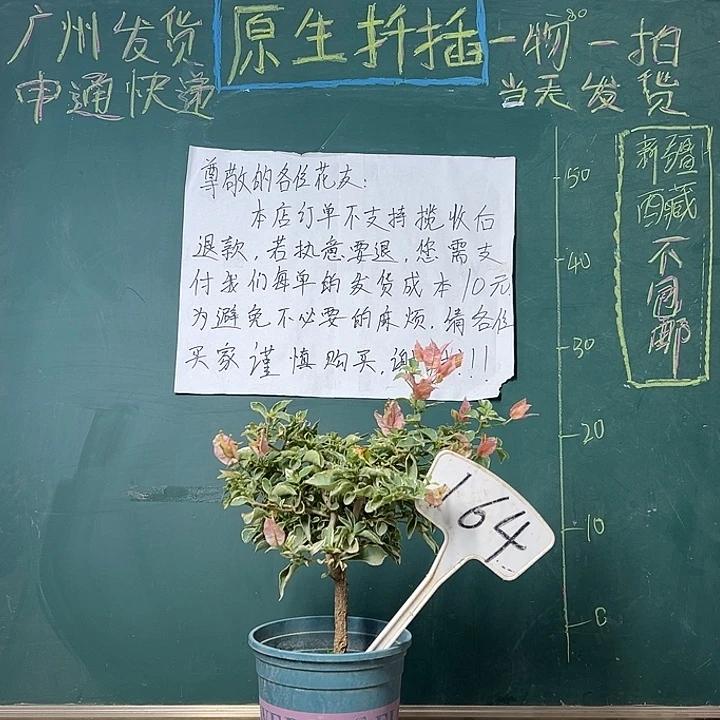 广州发货
原生扦插
一物一拍
申通快递
当天发货
尊敬的各位花友:
本店订单不支持揽收后
退款,若执意要退,您需支
付我们每单的发货成本10元
为避免不必要的麻烦.请各位
买家谨慎购买,谢!!!
新疆
西藏
不包邮
50
40
30
20
10
0
164